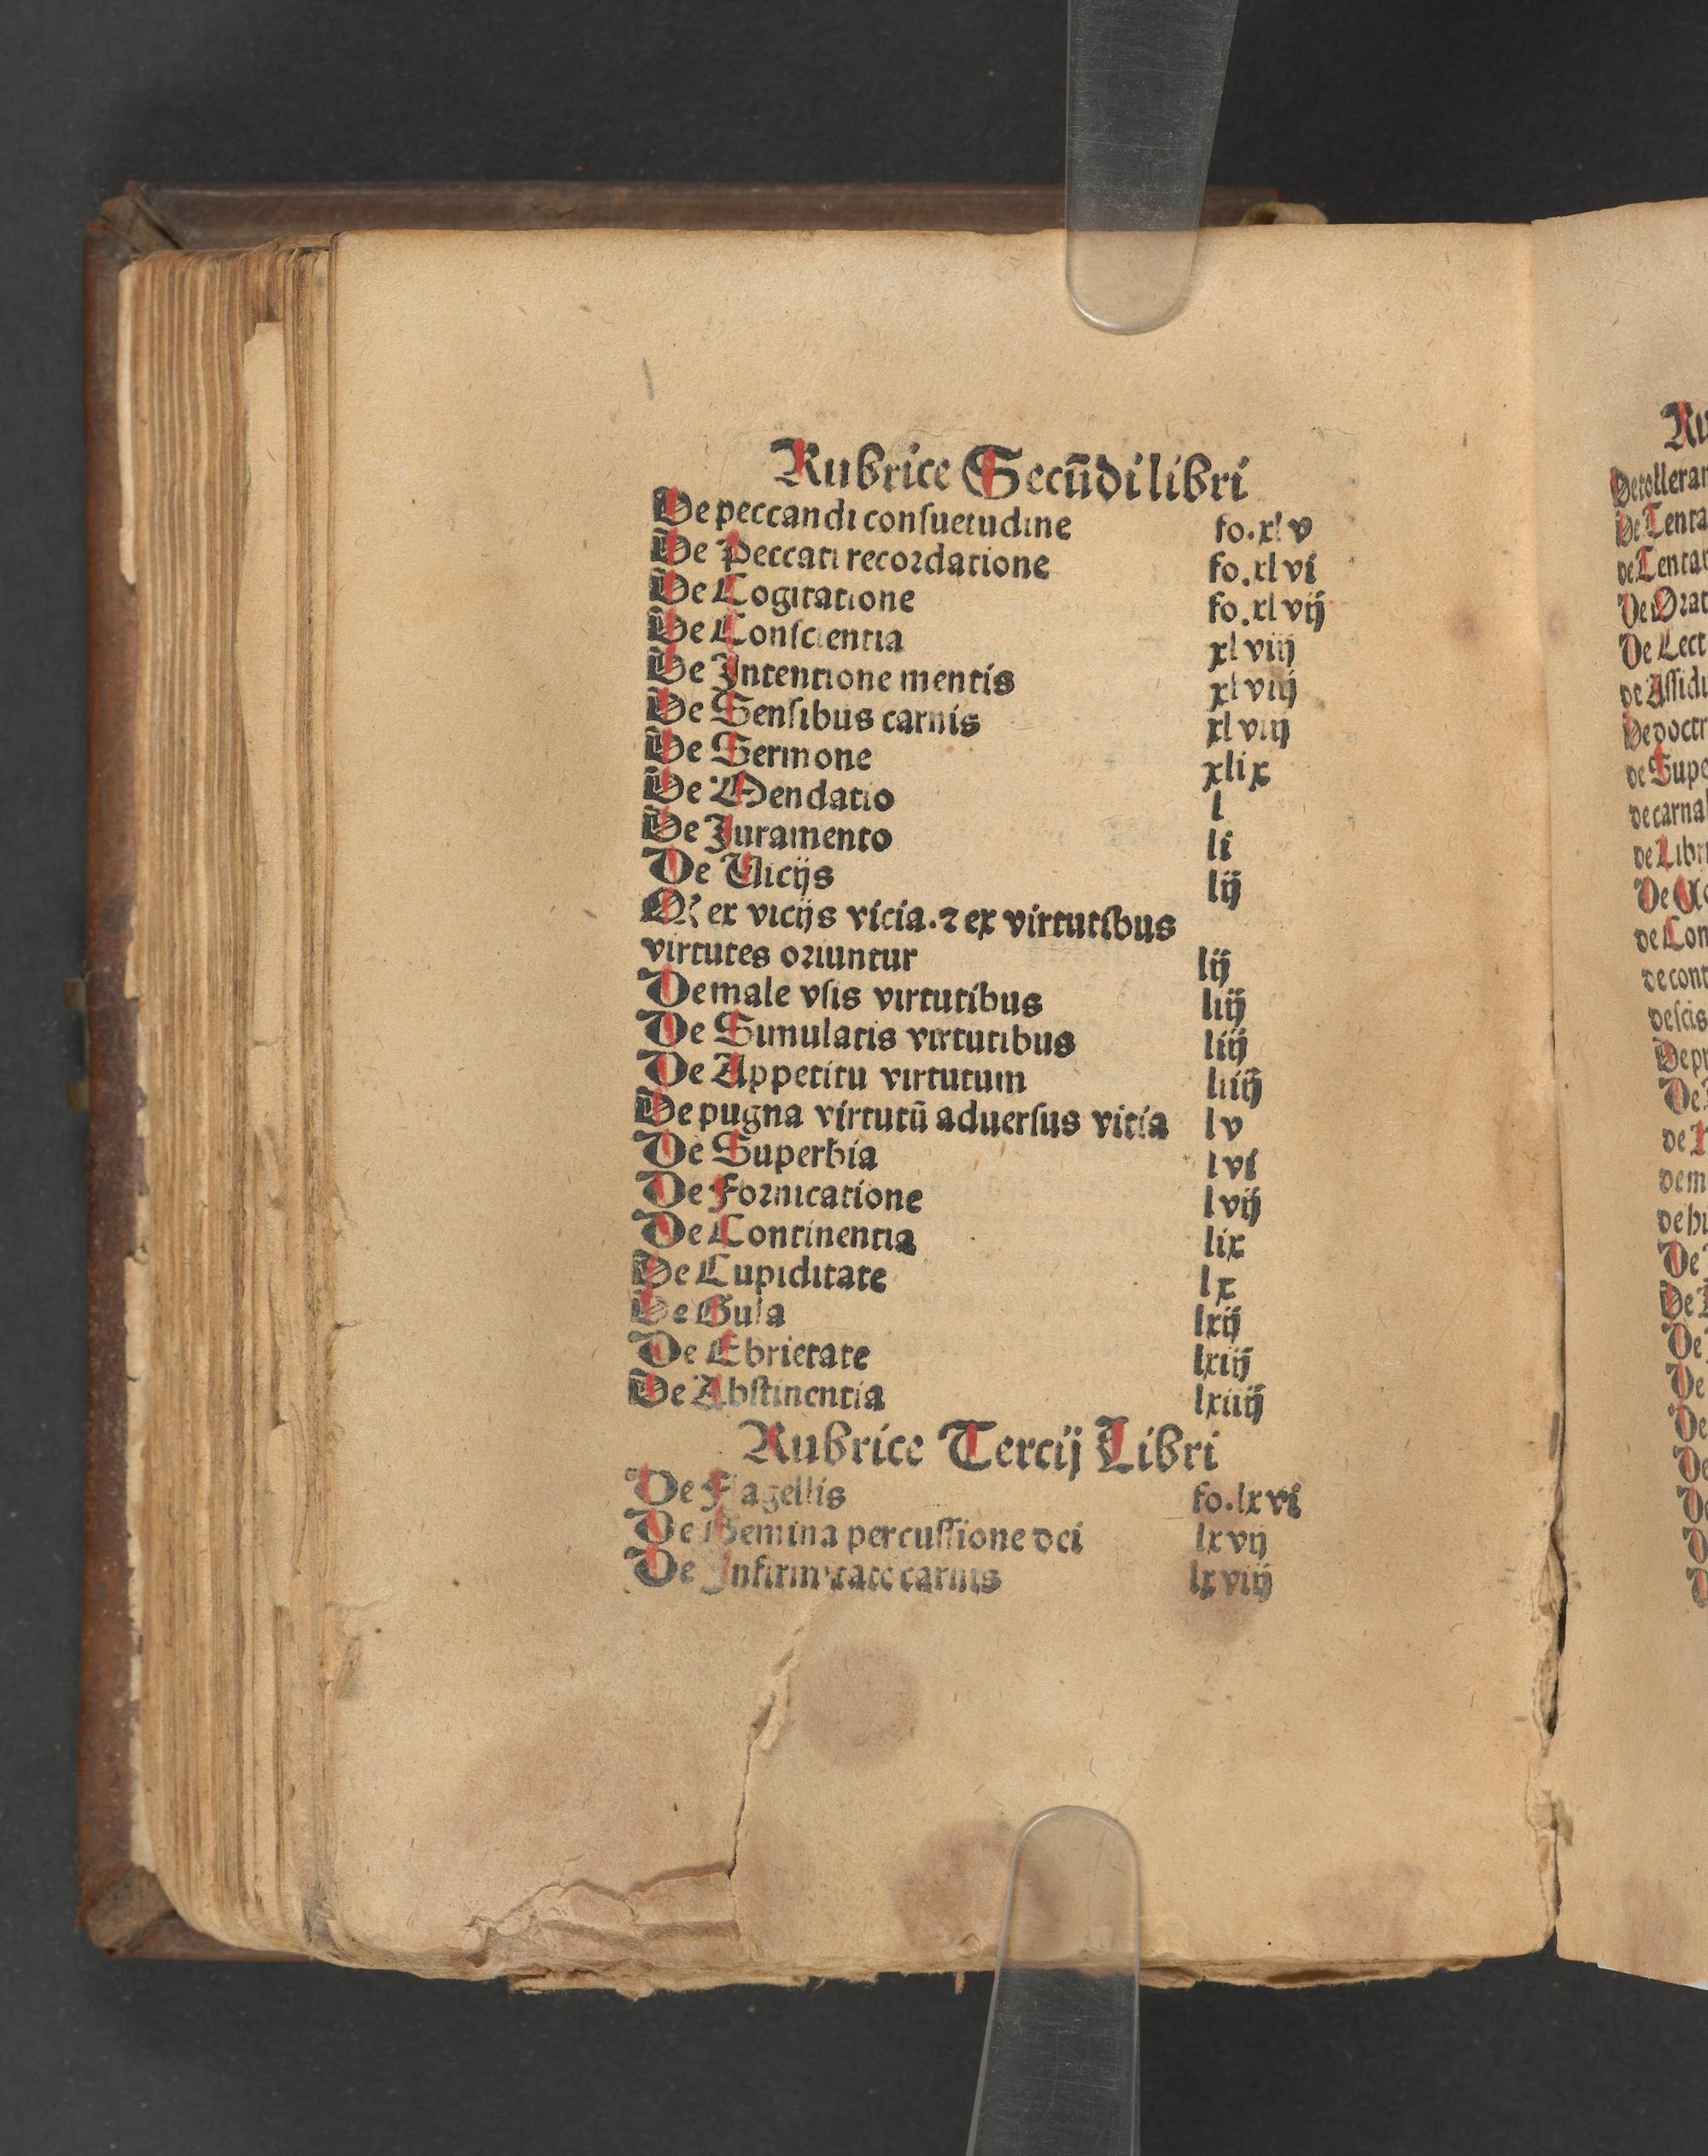 Rubrice Secūdi libri
De peccandi conſuetudine fo.xlv
De Peccati recordatione fo.xlvi
De Cogitatione fo.xlvij
De Conſcientia xlviij
De Intentione mentis xlviij
De Senſibus carnis xlviij
De Sermone xlix
De Mendatio l
De Juramento li
De Vicijs lij
Ꝙ ex vicijs vicia.⁊ ex virtutibus
virtutes oriuntur lij
De male vſis virtutibus liij
De Simulatis virtutibus liij
De Appetitu virtutum liiij
De pugna virtutū aduerſus vitia lv
De Superbia lvi
De Fornicatione lvij
De Continentia lix
De Cupiditate lx
De Gula lxij
De Ebrietate lxiij
De Abſtinentia lxiiij
Rubrice Tercij Libri
De Flagellis fo.lxvi
De Gemina percuſſione dei lxvij
De Infirmitate carnis lxviij
Ru
De tollera
De Tenta
de Tenta
De Orat
De Lect
de Aſſidu
De doctr
de Supe
de carna
de Libri
de Con
de cont
de ſcis
De pr
De
de
de m
de hi
De
De
De
De
De
De